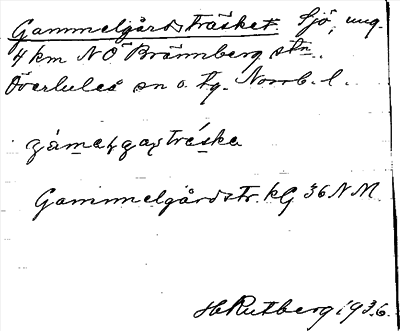 Gammelgårdsträsket. Sjö, ung.
4 km NÖ Brännberg stn.
Överluleå sn o. tg. Norrb. l.
Gammelgårdstr. kG 36 NM.
H Rutberg 1936.